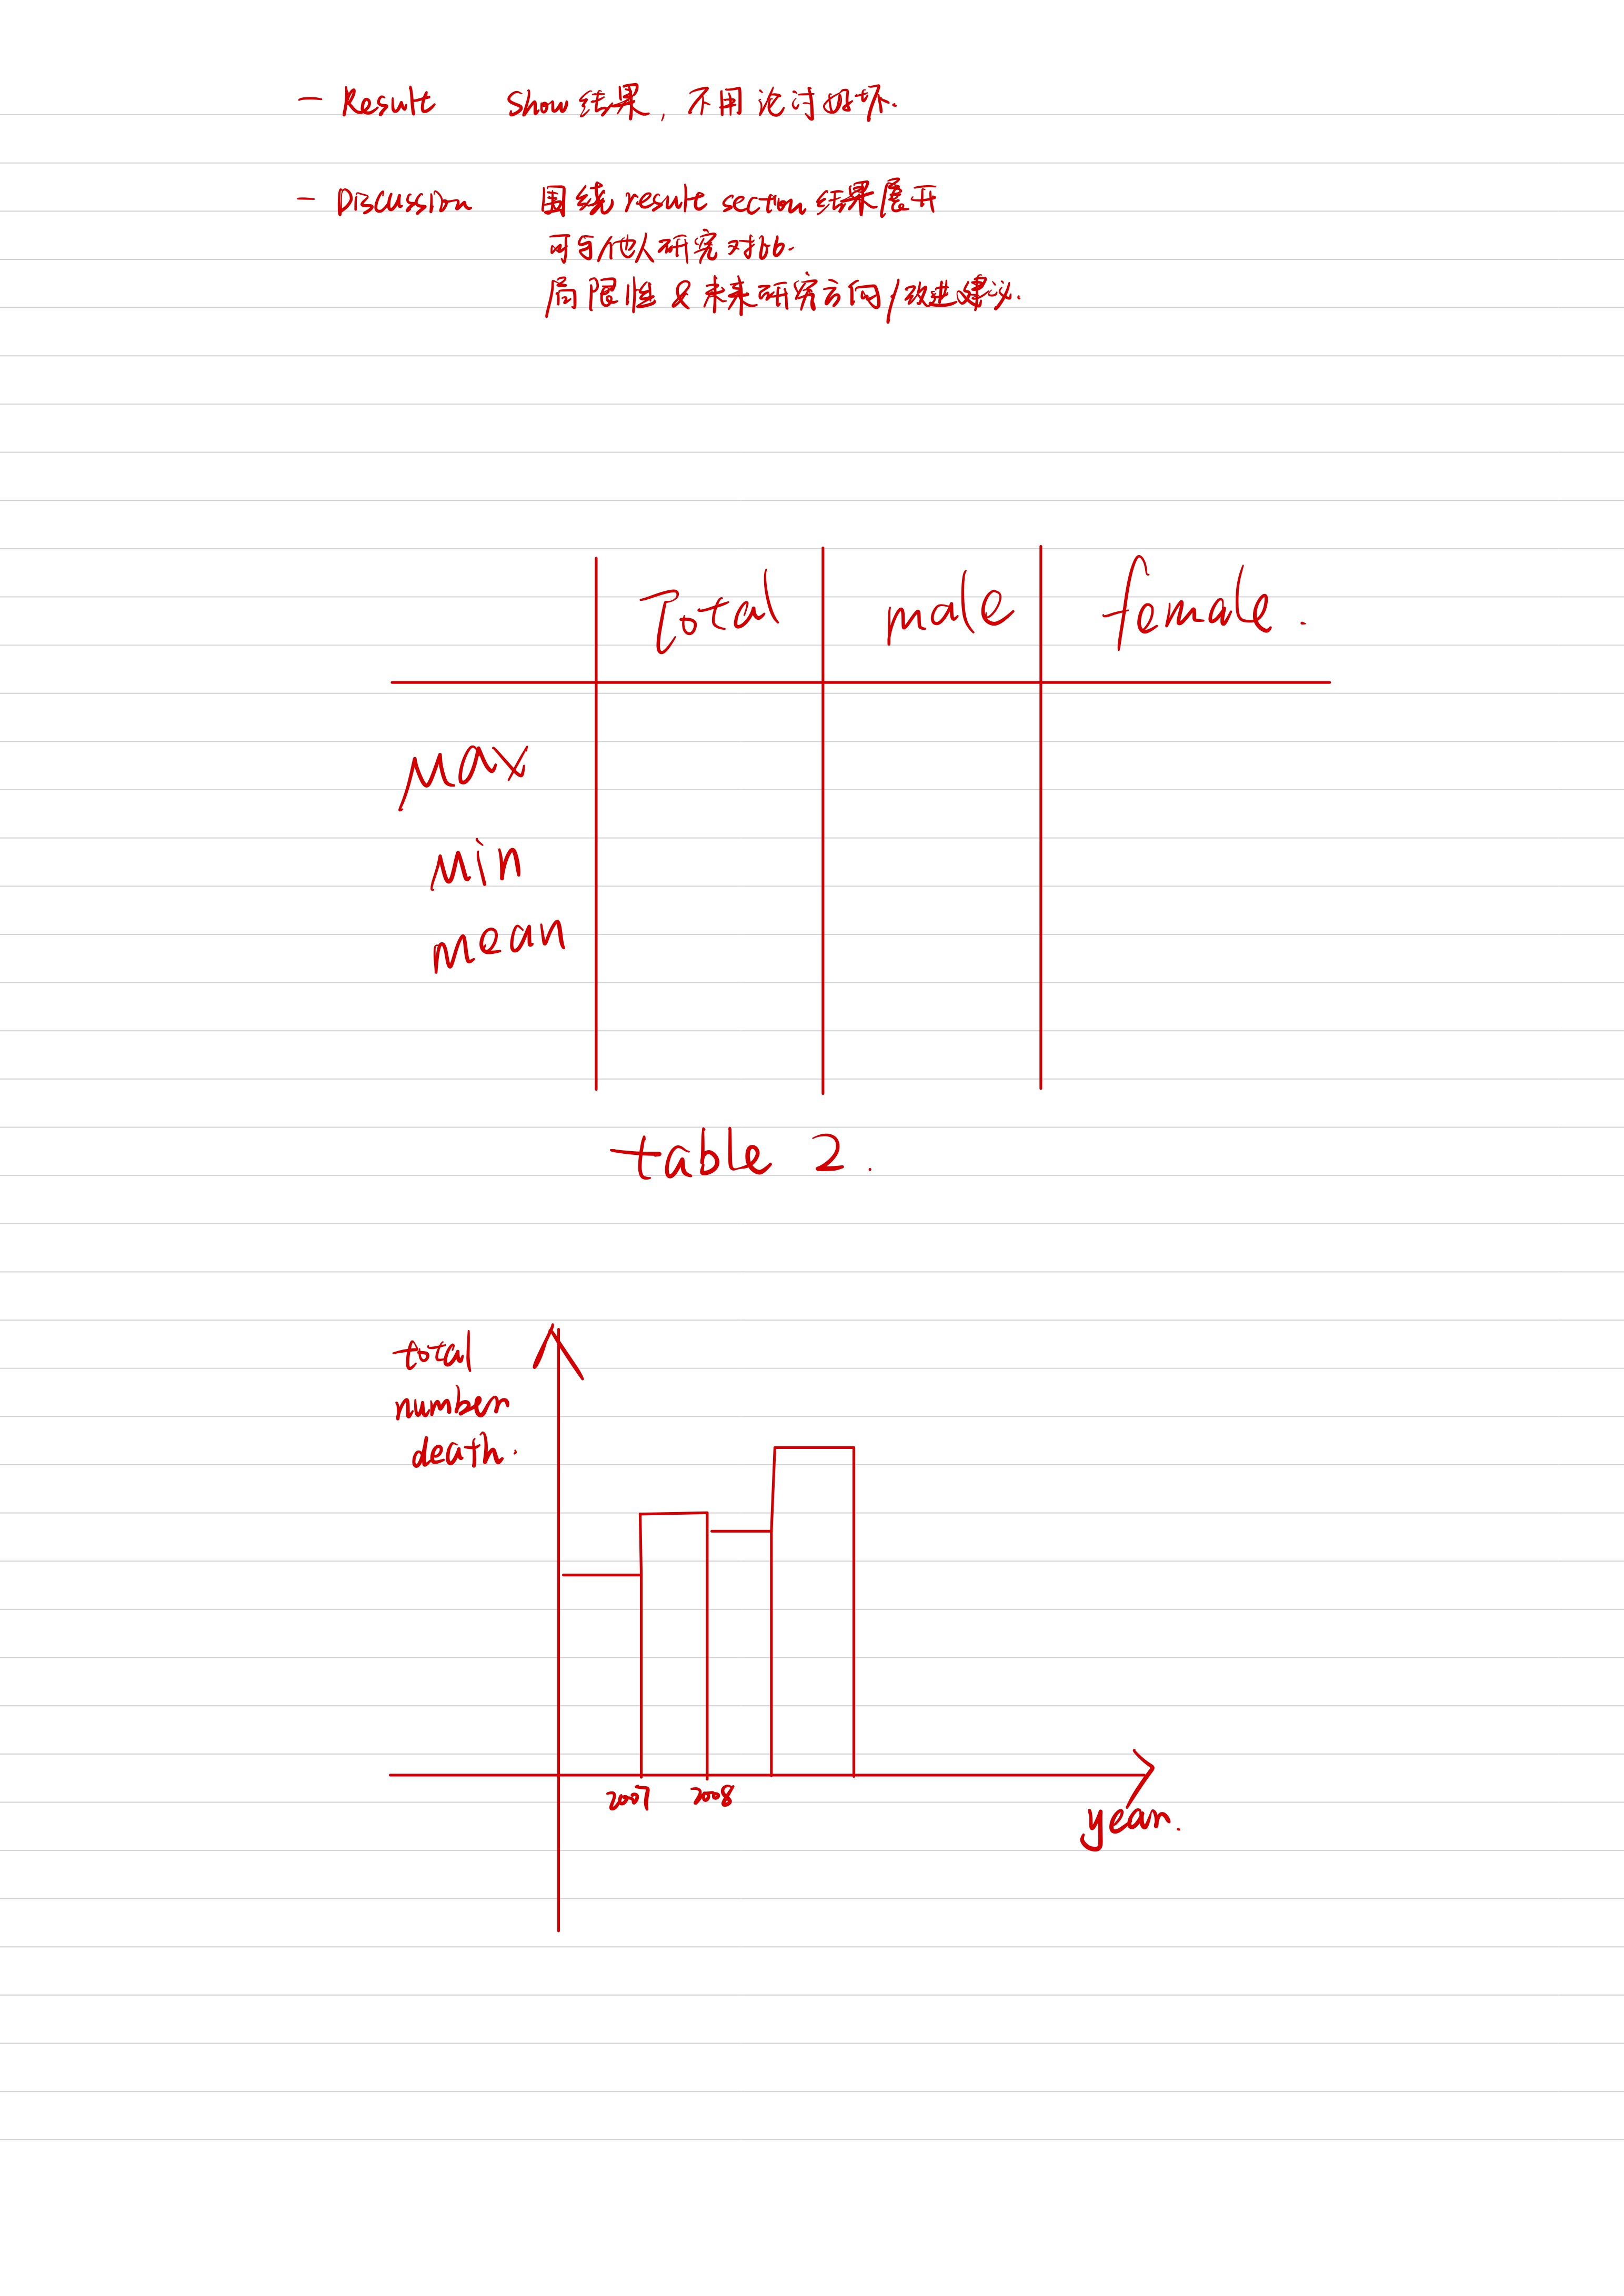 - Result show结果, 不用论讨好坏.
- Discussion 围绕 result section 结果展开
可与他人研究对比.
局限性 & 未来研究方向/改进建议.
Total male female.
Max
Min
mean
table 2.
total
number
death.
2007 2008
year.